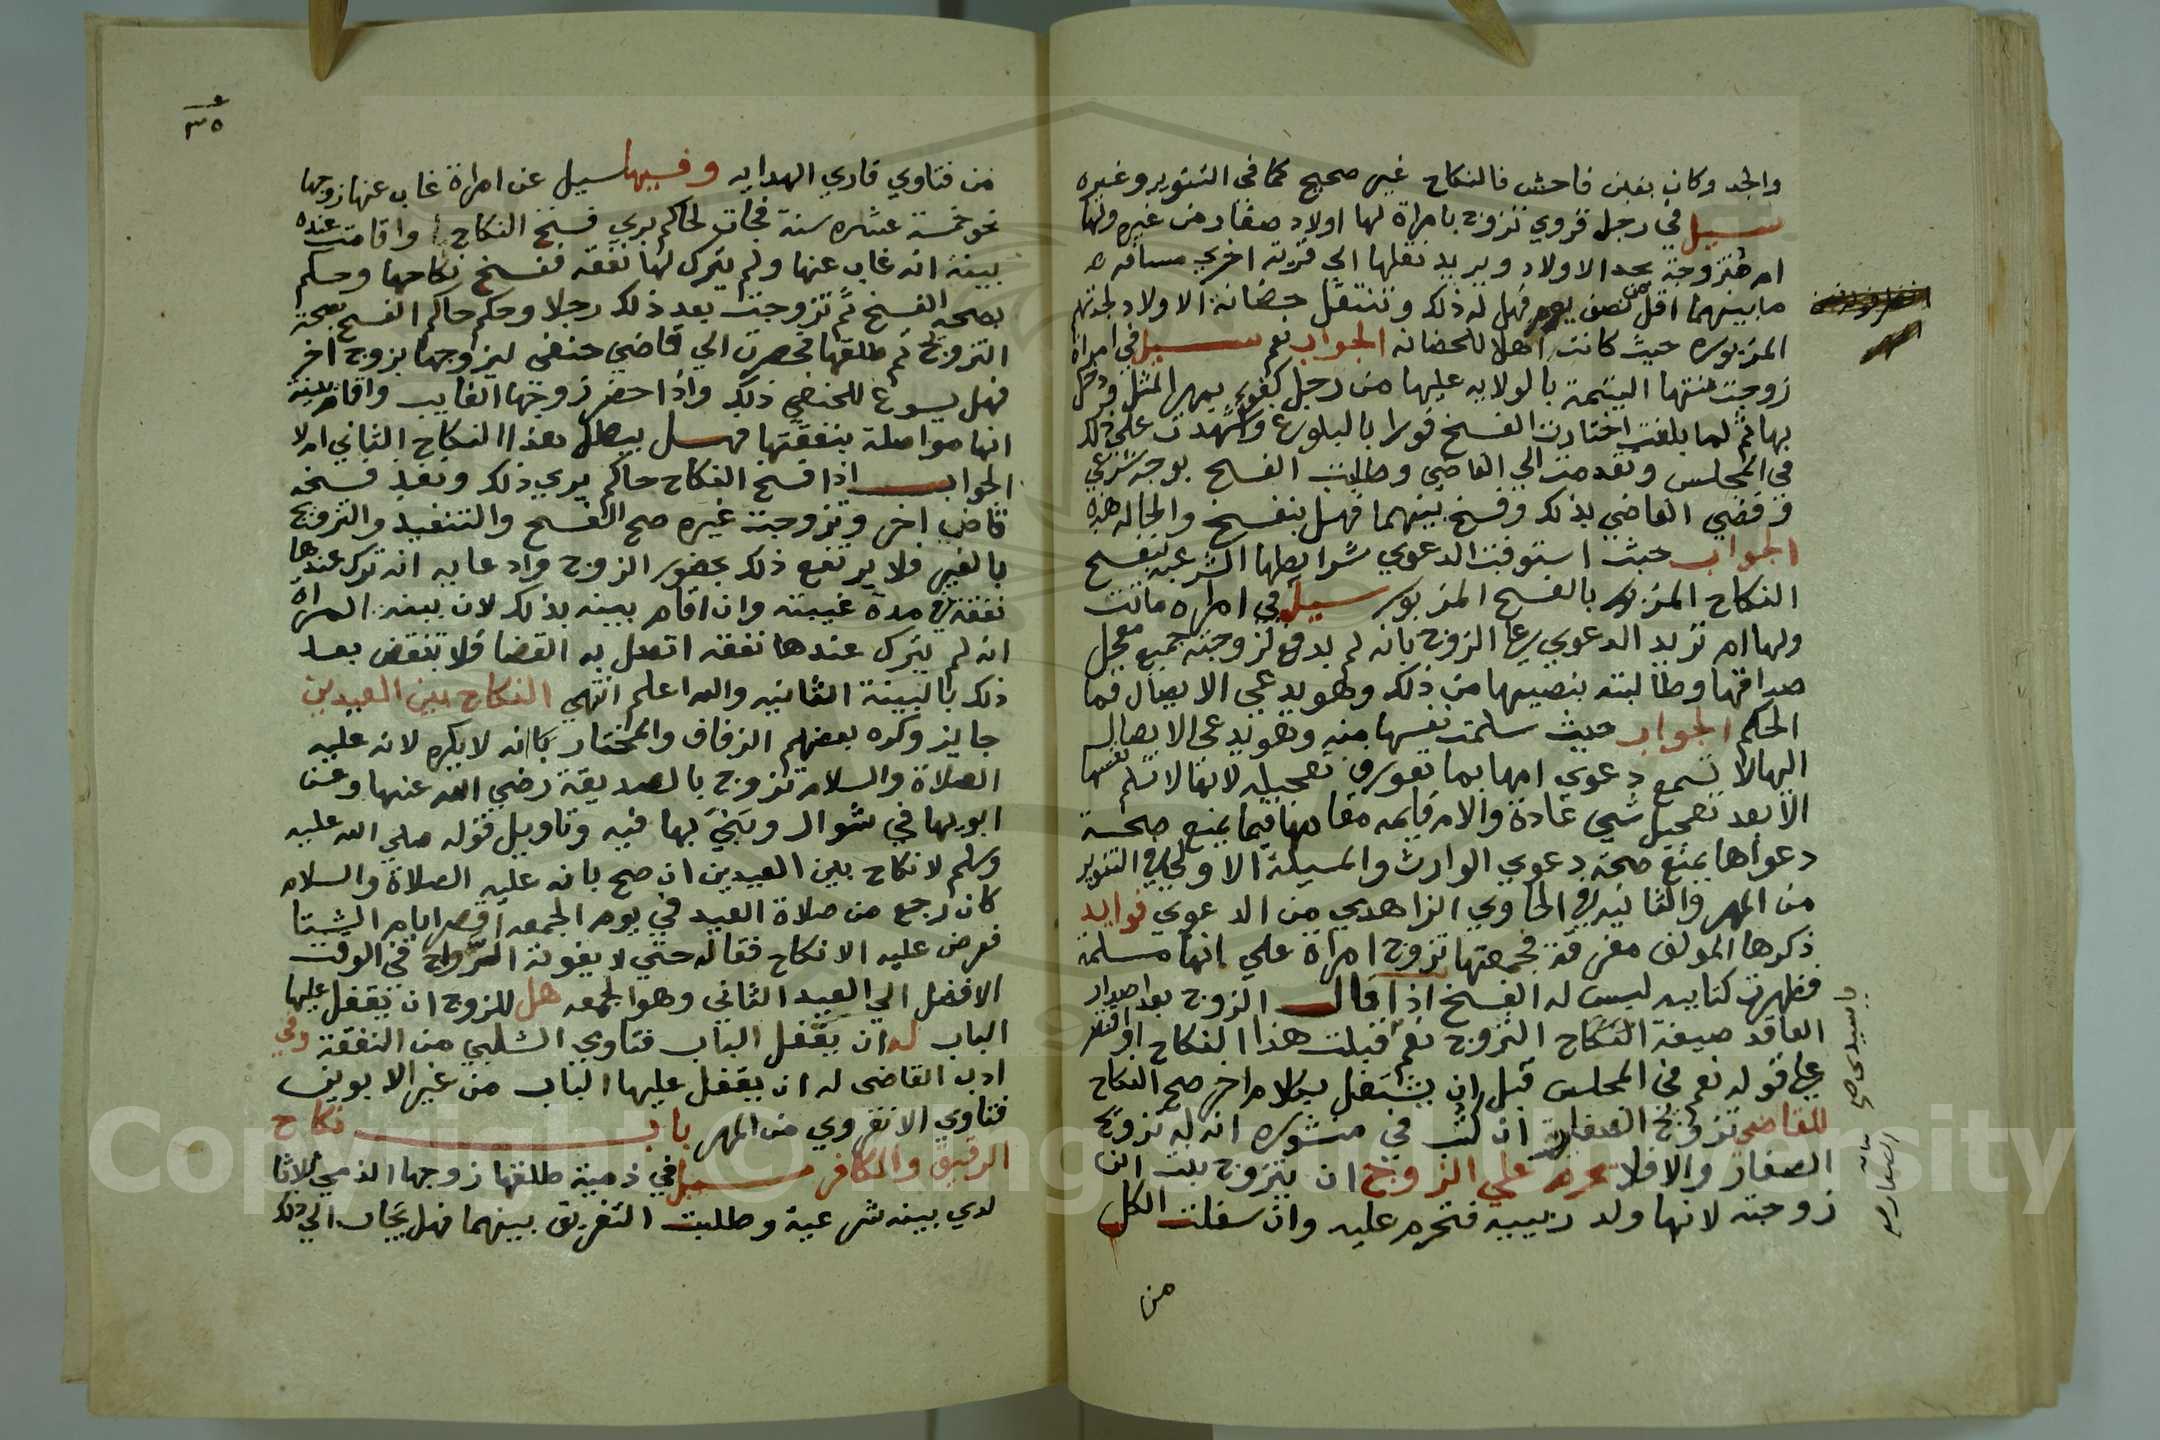 والجد وكان بغبن فاحش فالنكاح غير صحيح كما في التنوير وغيره
سيل في رجل قروي تزوج بامراة لها اولاد صغار من غيره ولها
ام متزوجة بجد الاولاد ويريد نقلها الي قرية اخري مسافة
ما بينهما اقل من نصف يوم فهل له ذلك وتنتقل حضانة الاولاد لجدتهم
المزبوره حيث كانت اهلا للحضانه الجواب نعم سيل في امراة
زوجت بنتها اليتيمة بالولايه عليها من رجل كفوء بمهر المثل ودخل
بها ثم لما بلغت اختارت الفسخ فورا بالبلوغ واشهدت علي ذلك
في المجلس وتقدمت الي القاضي وطلبت الفسخ بوجه شرعي
وقضي القاضي بذلك وفسخ بينهما فهل ينفسخ والحاله هذه
الجواب حيث استوفت الدعوي شرايطها الشرعيه ينفسخ
النكاح المزبور بالفسخ المزبور سيل في امراه ماتت
ولها ام تريد الدعوي علي الزوج بانه لم يدفع لزوجته جميع معجل
صداقها وطالبته بنصيبها من ذلك وهو يدعي الايصال فما
الحكم الجواب حيث سلمت نفسها منه وهو يدعي الايصال
اليها لا تسمع دعوي امها بما تعورف تعجيله لانها لا تسلم نفسها
الا بعد تعجيل شي عادة والام قايمه مقامها فيما يمنع صحة
دعواها يمنع صحة دعوي الوارث والمسيلة الاولي في التنوير
من المهر والثانيه في الحاوي الزاهدي من الدعوي فوايد
ذكرها المولف مفرقة فجمعتها تزوج امراة علي انها مسلمة
فظهرت كتابيه ليس له الفسخ اذا قال الزوج بعد اصدار
العاقد صيغة النكاح التزوج نعم قبلت هذا النكاح او اقتصر
علي قوله نعم في المجلس قبل ان يشتغل بكلام اخر صح النكاح
للقاضي تزويج الصغار ان كتب في منشوره ان له تزويج
الصغار والا فلا يحرم علي الزوج ان يتزوج بنت ابن
زوجته لانها ولد ربيبه فتحرم عليه وان سفلت الكل
من
٣٥
من فتاوي قاري الهدايه وفيها سيل عن امراة غاب عنها زوجها
نحو خمسة عشره سنة فجات لحاكم يري فسخ النكاح واقامت عنده
بينة انه غاب عنها ولم يترك لها نفقه ففسخ نكاحها وحكم
بصحة الفسخ ثم تزوجت بعد ذلك رجلا وحكم حاكم الفسخ بصحة
التزوج ثم طلقها فحضرت الي قاضي حنفي ليزوجها بزوج اخر
فهل يسوغ للحنفي ذلك واذا حضر زوجها الغايب واقام بينة
انها مواصلة بنفقتها فهل يبطل هذا النكاح الثاني ام لا
الجواب اذا فسخ النكاح حاكم يري ذلك ونفذ فسخه
قاضي اخر وتزوجت غيره صح الفسخ والتنفيذ والتزوج
بالغير فلا يرتفع ذلك بحضور الزوج وادعايه انه ترك عندها
نفقة في مدة غيبته وان اقام بينه بذلك لان بينة المراة
انه لم يترك عندها نفقه اتصل به القضا فلا تنقض بعد
ذلك بالبينة الثانيه والله اعلم انتهي النكاح بين العيدين
جايز وكره بعضهم الزفاف والمختار انه لا يكره لانه عليه
الصلاة والسلام تزوج بالصديقة رضي الله عنها وعن
ابويها في شوال وبني بها فيه وتاويل قوله صلي الله عليه
وسلم لا نكاح بين العيدين ان صح بانه عليه الصلاة والسلام
كان رجع من صلاة العيد في يوم الجمعه اقصر ايام الشتا
فعرض عليه الانكاح فقاله حتي لا يفوته الرواح في الوقت
الافضل الي العيد الثاني وهو الجمعه هل للزوج ان يقفل عليها
الباب له ان يقفل الباب فتاوي الشلبي من النفقة وفي
ادب القاضي له ان يقفل عليها الباب من غير الابوين
فتاوي الانقروي من المهر باب نكاح
الرقيق والكافر سيل في ذمية طلقها زوجها الذمي ثلاثا
لدي بينه شرعية وطلبت التفريق بينهما فهل تجاب الي ذلك
Copyright © King Saud University